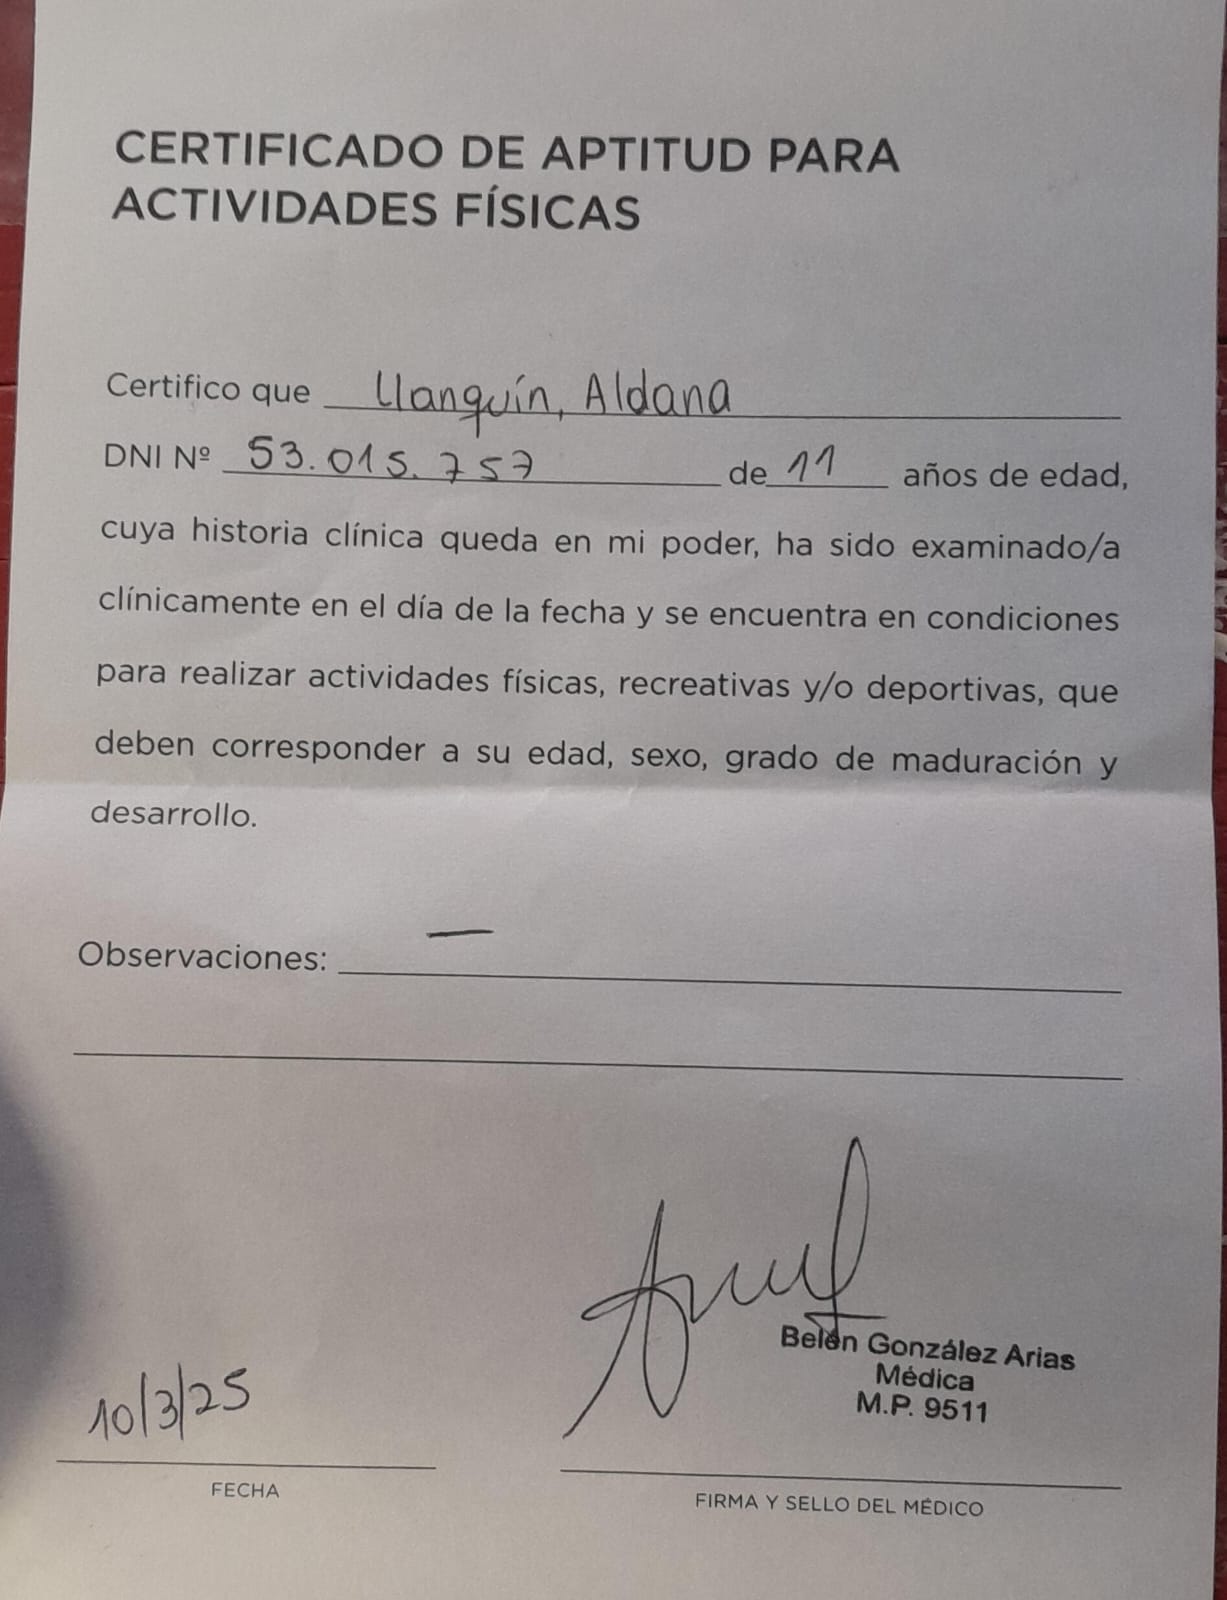 CERTIFICADO DE APTITUD PARA
ACTIVIDADES FÍSICAS
Certifico que Llanquín, Aldana
DNI Nº 53.015.757 de 11 años de edad,
cuya historia clínica queda en mi poder, ha sido examinado/a
clínicamente en el día de la fecha y se encuentra en condiciones
para realizar actividades físicas, recreativas y/o deportivas, que
deben corresponder a su edad, sexo, grado de maduración y
desarrollo.
Observaciones: —
Belén González Arias
Médica
M.P. 9511
10/3/25
FECHA
FIRMA Y SELLO DEL MÉDICO